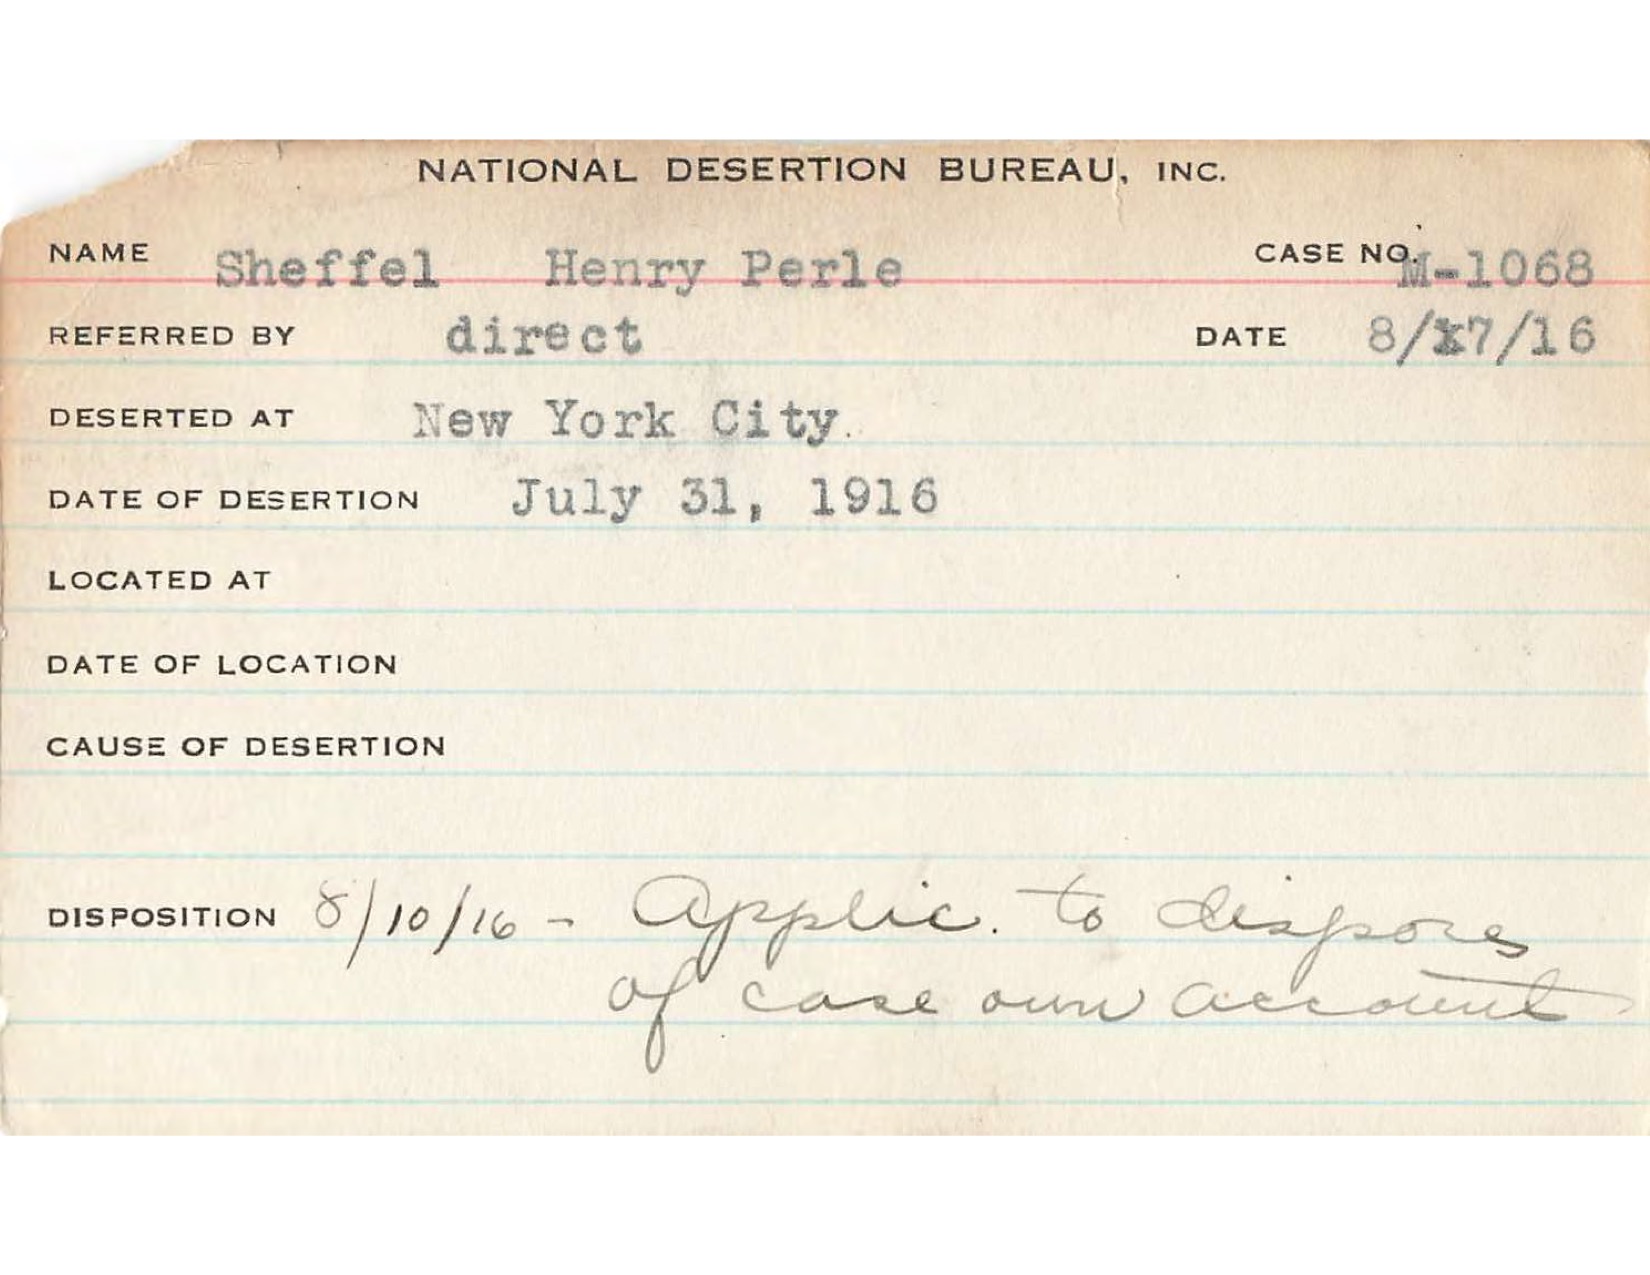 NATIONAL DESERTION BUREAU, INC.
NAME Sheffel Henry Perle CASE NO. M-1068
REFERRED BY direct DATE 8/7/16
DESERTED AT New York City.
DATE OF DESERTION July 31, 1916
LOCATED AT
DATE OF LOCATION
CAUSE OF DESERTION
DISPOSITION 8/10/16 - Applic. to dispose
of case own account